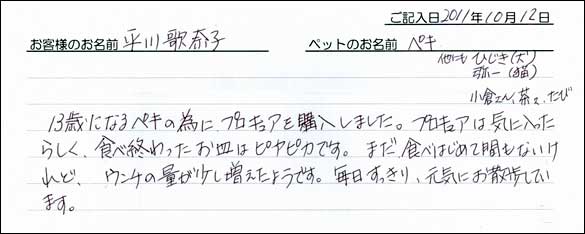 ご記入日2011年10月12日
お客様のお名前 平川歌奈子 ペットのお名前 ペキ
他にも ひじき(犬)
弥一(猫)
小倉さん、茶々、たび
13歳になるペキの為に、プロキュアを購入しました。プロキュアは気に入った
らしく、食べ終わったお皿はピカピカです。まだ、食べはじめて間もないけ
れど、ウンチの量が少し増えたようです。毎日すっきり、元気にお散歩してい
ます。